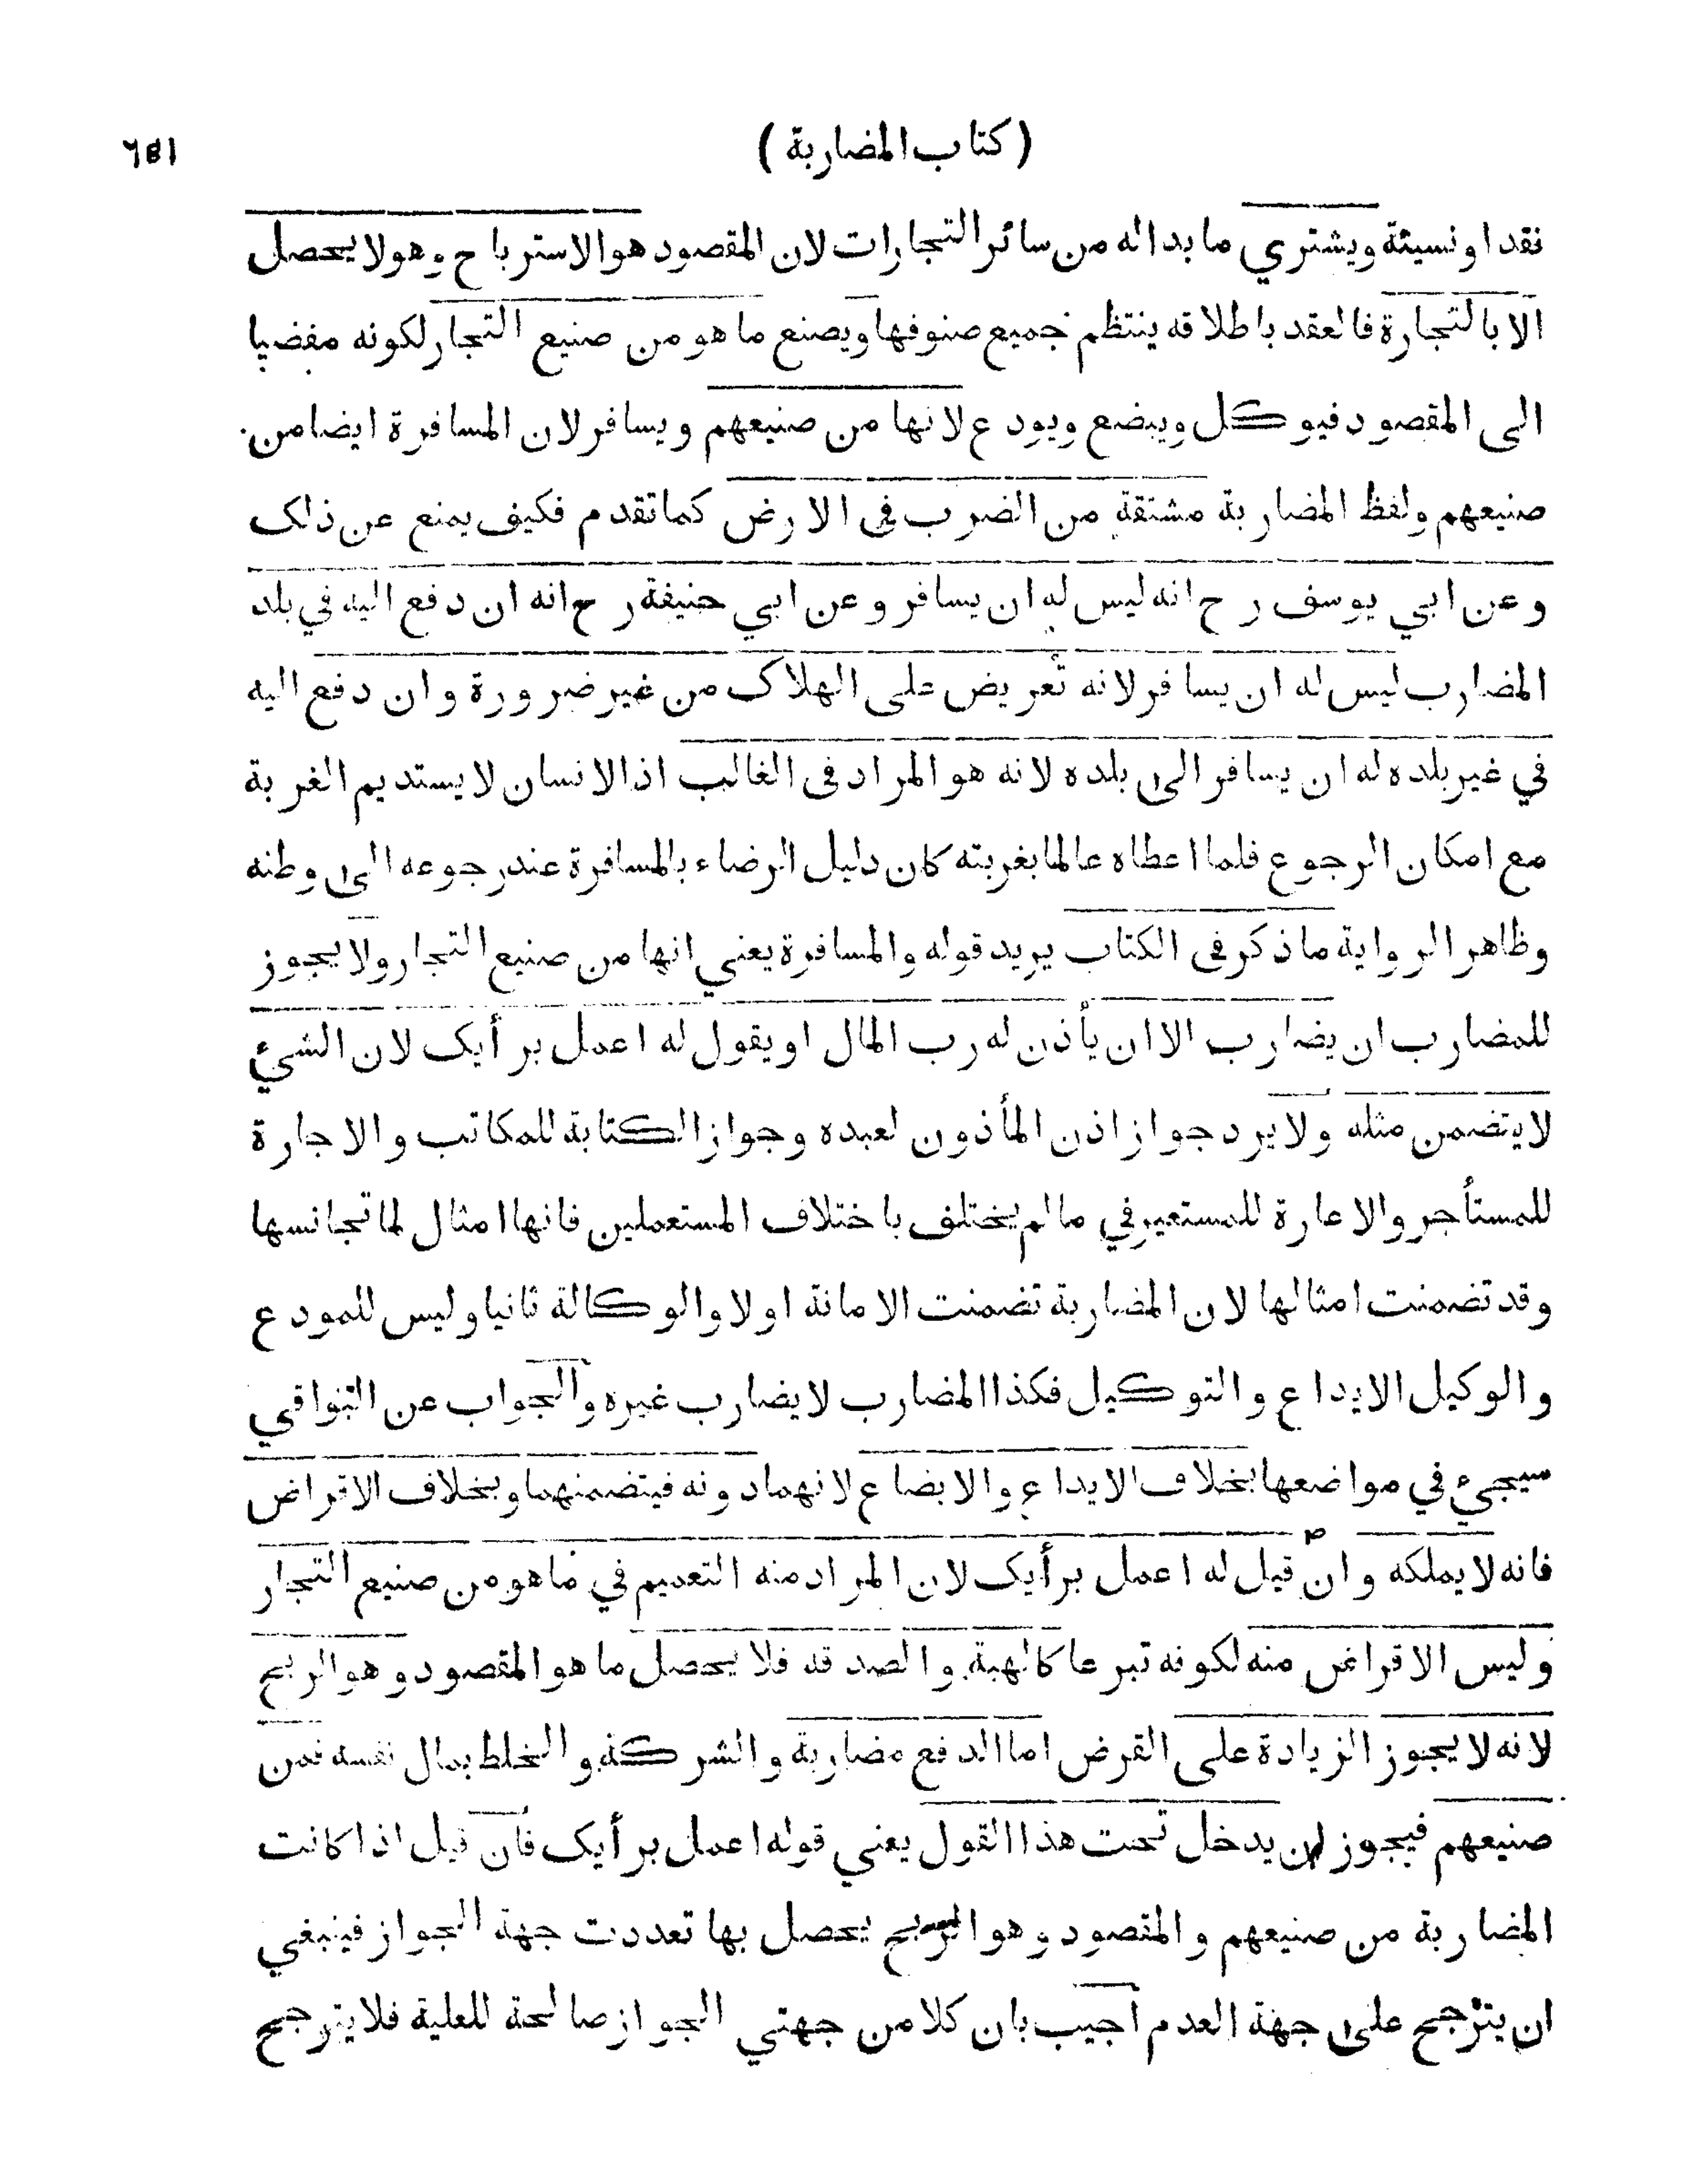 (كتاب المضاربة)
نقدا ونسيئة ويشتري ما بدا له من سائر التجارات لان المقصود هو الاسترباح وهو لا يحصل
الا بالتجارة فالعقد باطلاقه ينتظم جميع صنوفها ويصنع ما هو من صنيع التجار لكونه مفضيا
الى المقصود فيوكل ويبضع ويودع لانها من صنيعهم ويسافر لان المسافرة ايضا من
صنيعهم ولفظ المضاربة مشتقة من الضرب في الارض كما تقدم فكيف يمنع عن ذلك
وعن ابي يوسف رح انه ليس له ان يسافر وعن ابي حنيفة رح انه ان دفع اليه في بلد
المضارب ليس له ان يسافر لانه تعريض على الهلاك من غير ضرورة وان دفع اليه
في غير بلده له ان يسافر الى بلده لانه هو المراد في الغالب اذ الانسان لا يستديم الغربة
مع امكان الرجوع فلما اعطاه عالما بغربته كان دليل الرضاء بالمسافرة عند رجوعه الى وطنه
وظاهر الرواية ما ذكر في الكتاب يريد قوله والمسافرة يعني انها من صنيع التجار ولا يجوز
للمضارب ان يضارب الا ان يأذن له رب المال او يقول له اعمل برأيك لان الشيء
لا يتضمن مثله ولا يرد جواز اذن المأذون لعبده وجواز الكتابة للمكاتب والاجارة
للمستأجر والاعارة للمستعير في ما لم يختلف باختلاف المستعملين فانها امثال لما تجانسها
وقد تضمنت امثالها لان المضاربة تضمنت الامانة اولا والوكالة ثانيا وليس للمودع
والوكيل الايداع والتوكيل فكذا المضارب لا يضارب غيره والجواب عن البواقي
سيجيء في مواضعها بخلاف الايداع والابضاع لانهما دونه فيتضمنهما وبخلاف الاقراض
فانه لا يملكه وان قيل له اعمل برأيك لان المراد منه التعميم في ما هو من صنيع التجار
وليس الاقراض منه لكونه تبرعا كالهبة والصدقه فلا يحصل ما هو المقصود وهو الربح
لانه لا يجوز الزيادة على القرض اما الدفع مضاربة والشركة والخلط بمال نفسه فمن
صنيعهم فيجوز ان يدخل تحت هذا القول يعني قوله اعمل برأيك فان قيل اذا كانت
المضاربة من صنيعهم والمقصود وهو الربح يحصل بها تعددت جهة الجواز فينبغي
ان يترجح على جهة العدم اجيب بان كلا من جهتي الجواز صالحة للعلية فلا يترجح